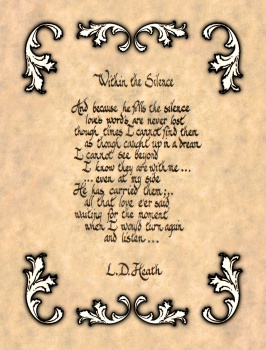 Within the Silence
And because he fills the silence
love's words are never lost
though times I cannot find them
as though caught up in a dream
I cannot see beyond
I know they are with me...
...even at my side
He has carried them;..
all that love e'er said
waiting for the moment
when I would turn again
and listen...
L.D. Heath